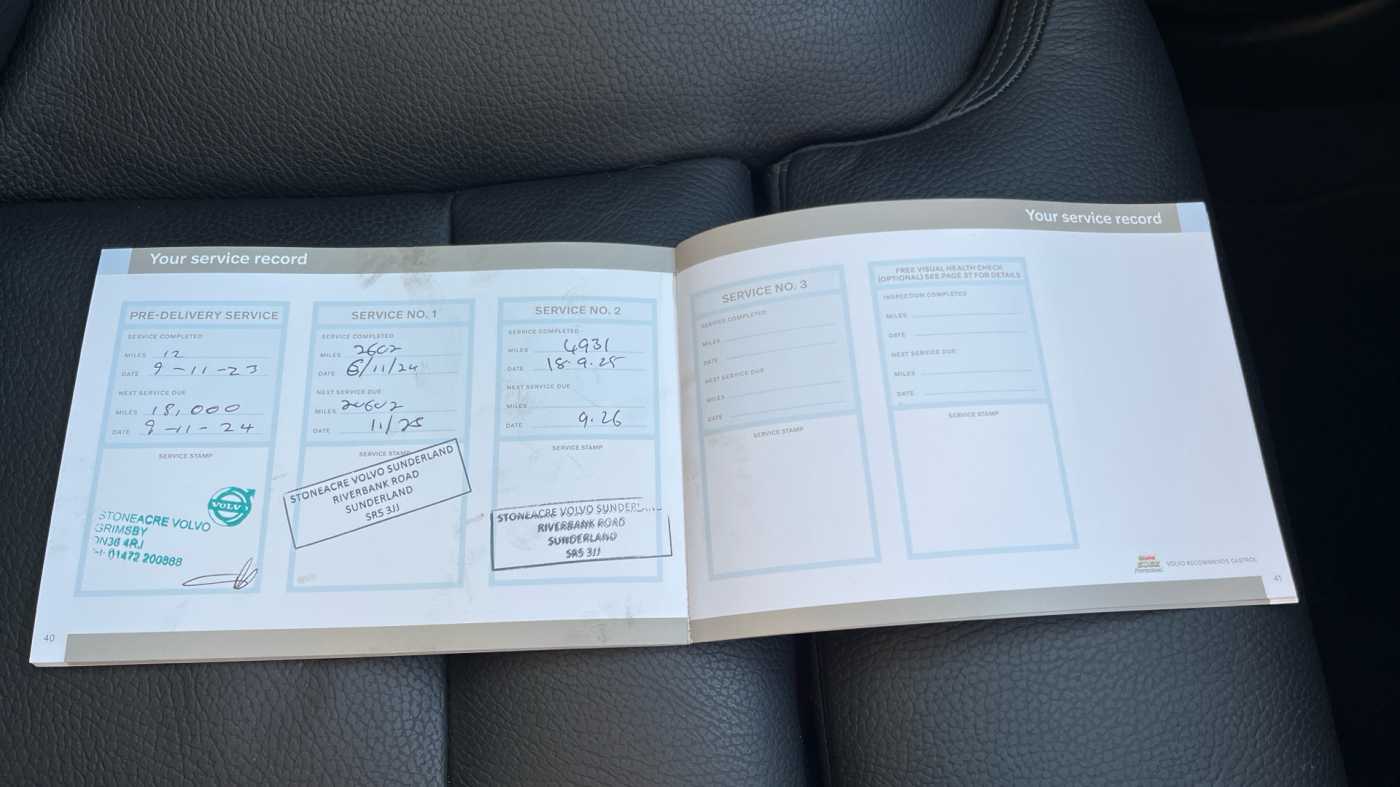 Your service record
PRE-DELIVERY SERVICE
SERVICE COMPLETED
MILES 12
DATE 9-11-23
NEXT SERVICE DUE
MILES 18,000
DATE 9-11-24
SERVICE STAMP
VOLVO
STONEACRE VOLVO
GRIMSBY
DN36 4RJ
01472 200888
SERVICE NO. 1
SERVICE COMPLETED
MILES 2602
DATE 6/11/24
NEXT SERVICE DUE
MILES 20602
DATE 11/25
SERVICE STAMP
STONEACRE VOLVO SUNDERLAND
RIVERBANK ROAD
SUNDERLAND
SR5 3JJ
SERVICE NO. 2
SERVICE COMPLETED
MILES 4931
DATE 18-9-25
NEXT SERVICE DUE
MILES
DATE 9.26
SERVICE STAMP
STONEACRE VOLVO SUNDERL
RIVERBANK ROAD
SUNDERLAND
SR5 3JJ
40
Your service record
SERVICE NO. 3
SERVICE COMPLETED
MILES
DATE
NEXT SERVICE DUE
MILES
DATE
SERVICE STAMP
FREE VISUAL HEALTH CHECK
(OPTIONAL) SEE PAGE 37 FOR DETAILS
INSPECTION COMPLETED
MILES
DATE
NEXT SERVICE DUE
MILES
DATE
SERVICE STAMP
VOLVO RECOMMENDS CASTROL
41